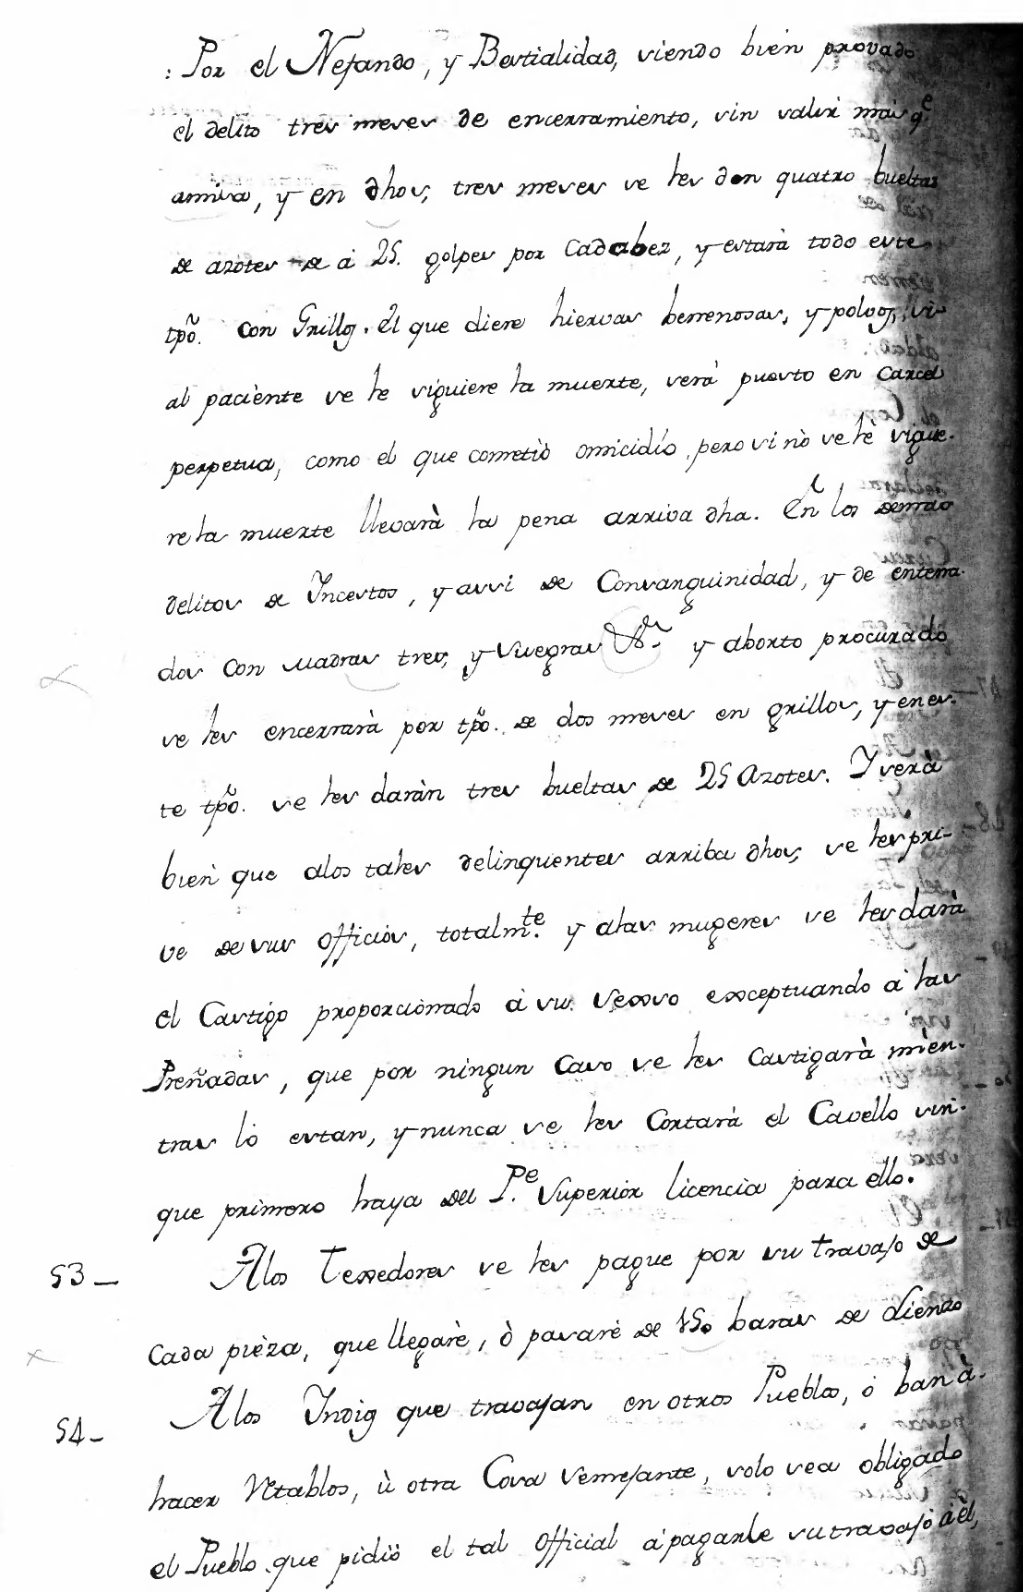 : Por el Nefando, y Bestialidad, siendo bien provado
el delito tres meses de encerramiento, sin salir mas q.e
a missa, y en dhos, tres meses se les dan quatro bueltas
de azotes de á 25. golpes por cadabez, y estará todo este
tpõ. con Grillos. El que diere hiervas benenosas, y polvos, si
al paciente se le siguiere la muerte, será puesto en carcel
perpetua, como el que cometiò omicidio, pero si nò se lè siguie-
re la muerte llevarà la pena arriva dha. En los demas
delitos de Incestos, y assi de Consanguinidad, y de entena-
dos con Madras tres, y Suegras &.a y aborto procurado
se les encerrarà por tpõ. de dos meses en grillos, y en es-
te tpõ. se les daràn tres bueltas de 25 Azotes. Y serà
bien que alos tales delinquentes arriba dhos, se les pri-
ve de sus officios, totalm.te y alas mugeres se les darà
el Castigo proporcionado á su. sexso exsceptuando á las
Preñadas, que por ningun caso se les castigarà mien-
tras lo estan, y nunca se les Cortarà el Cavello sin-
que primero haya del P.e Superior licencia para ello.
53 - Alos Texedores se les pague por su travajo de
cada pieza, que llegarè, ò pasarè de 150 baras de Lienzo
54 - Alos Indios que travajan en otros Pueblos, ó ban à-
hacer Retablos, ù otra Cosa Semejante, solo sea obligado
el Pueblo que pidió el tal official á pagarle su travajo á èl,